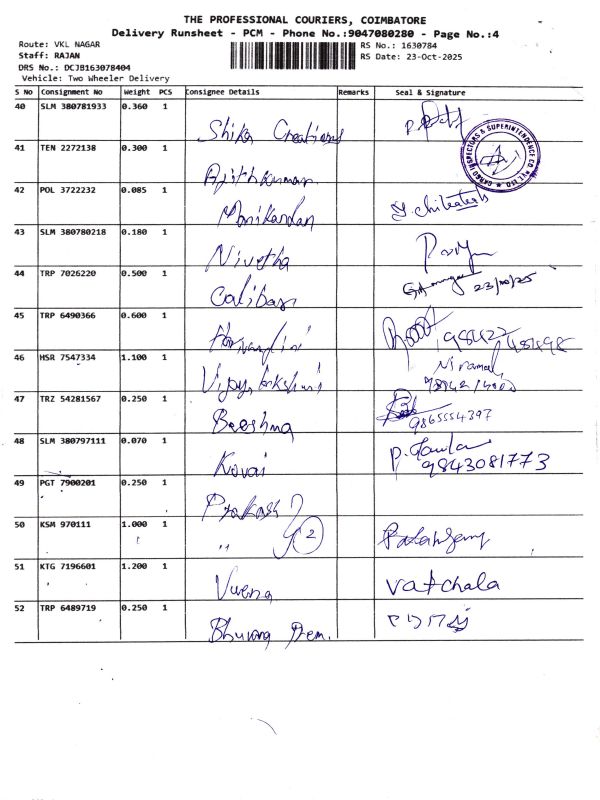 THE PROFESSIONAL COURIERS, COIMBATORE
Delivery Runsheet - PCM - Phone No.:9047080280 - Page No.:4
Route: VKL NAGAR
Staff: RAJAN
DRS No.: DCJB163078404
Vehicle: Two Wheeler Delivery
RS No.: 1630784
RS Date: 23-Oct-2025
S NO Consignment No Weight PCS Consignee Details Remarks Seal & Signature
40 SLM 380781933 0.360 1 Shika Creations
CARGO INSPECTORS & SUPERINTENDENCE CO PVT LTD
41 TEN 2272138 0.300 1 Ajithkumar
42 POL 3722232 0.085 1 Manikandan
43 SLM 380780218 0.180 1 Nivetha
44 TRP 7026220 0.500 1 Calibar 23/10/25
45 TRP 6490366 0.600 1
46 HSR 7547334 1.100 1 Vijayalakshmi Nirmal
47 TRZ 54281567 0.250 1 Beeshma 9865554397
48 SLM 380797111 0.070 1 Kovai 9843081773
49 PGT 7900201 0.250 1 Prakash
50 KSM 970111 1.000 1 " 2
51 KTG 7196601 1.200 1 Vatchala
52 TRP 6489719 0.250 1